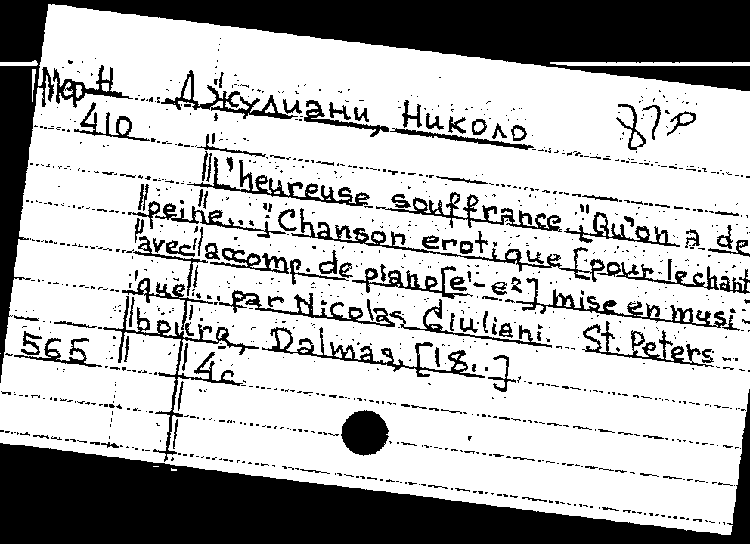 Мер Н Джулиани, Николо
410
L'heureuse souffrance ["Qu'on a de
peine..."] Chanson erotique [pour le chant
avec accomp. de piano [e¹-e²], mise en musi-
que... par Nicolas Giuliani. St. Peters-
bourg, Dalmas, [18..]
565 4c.